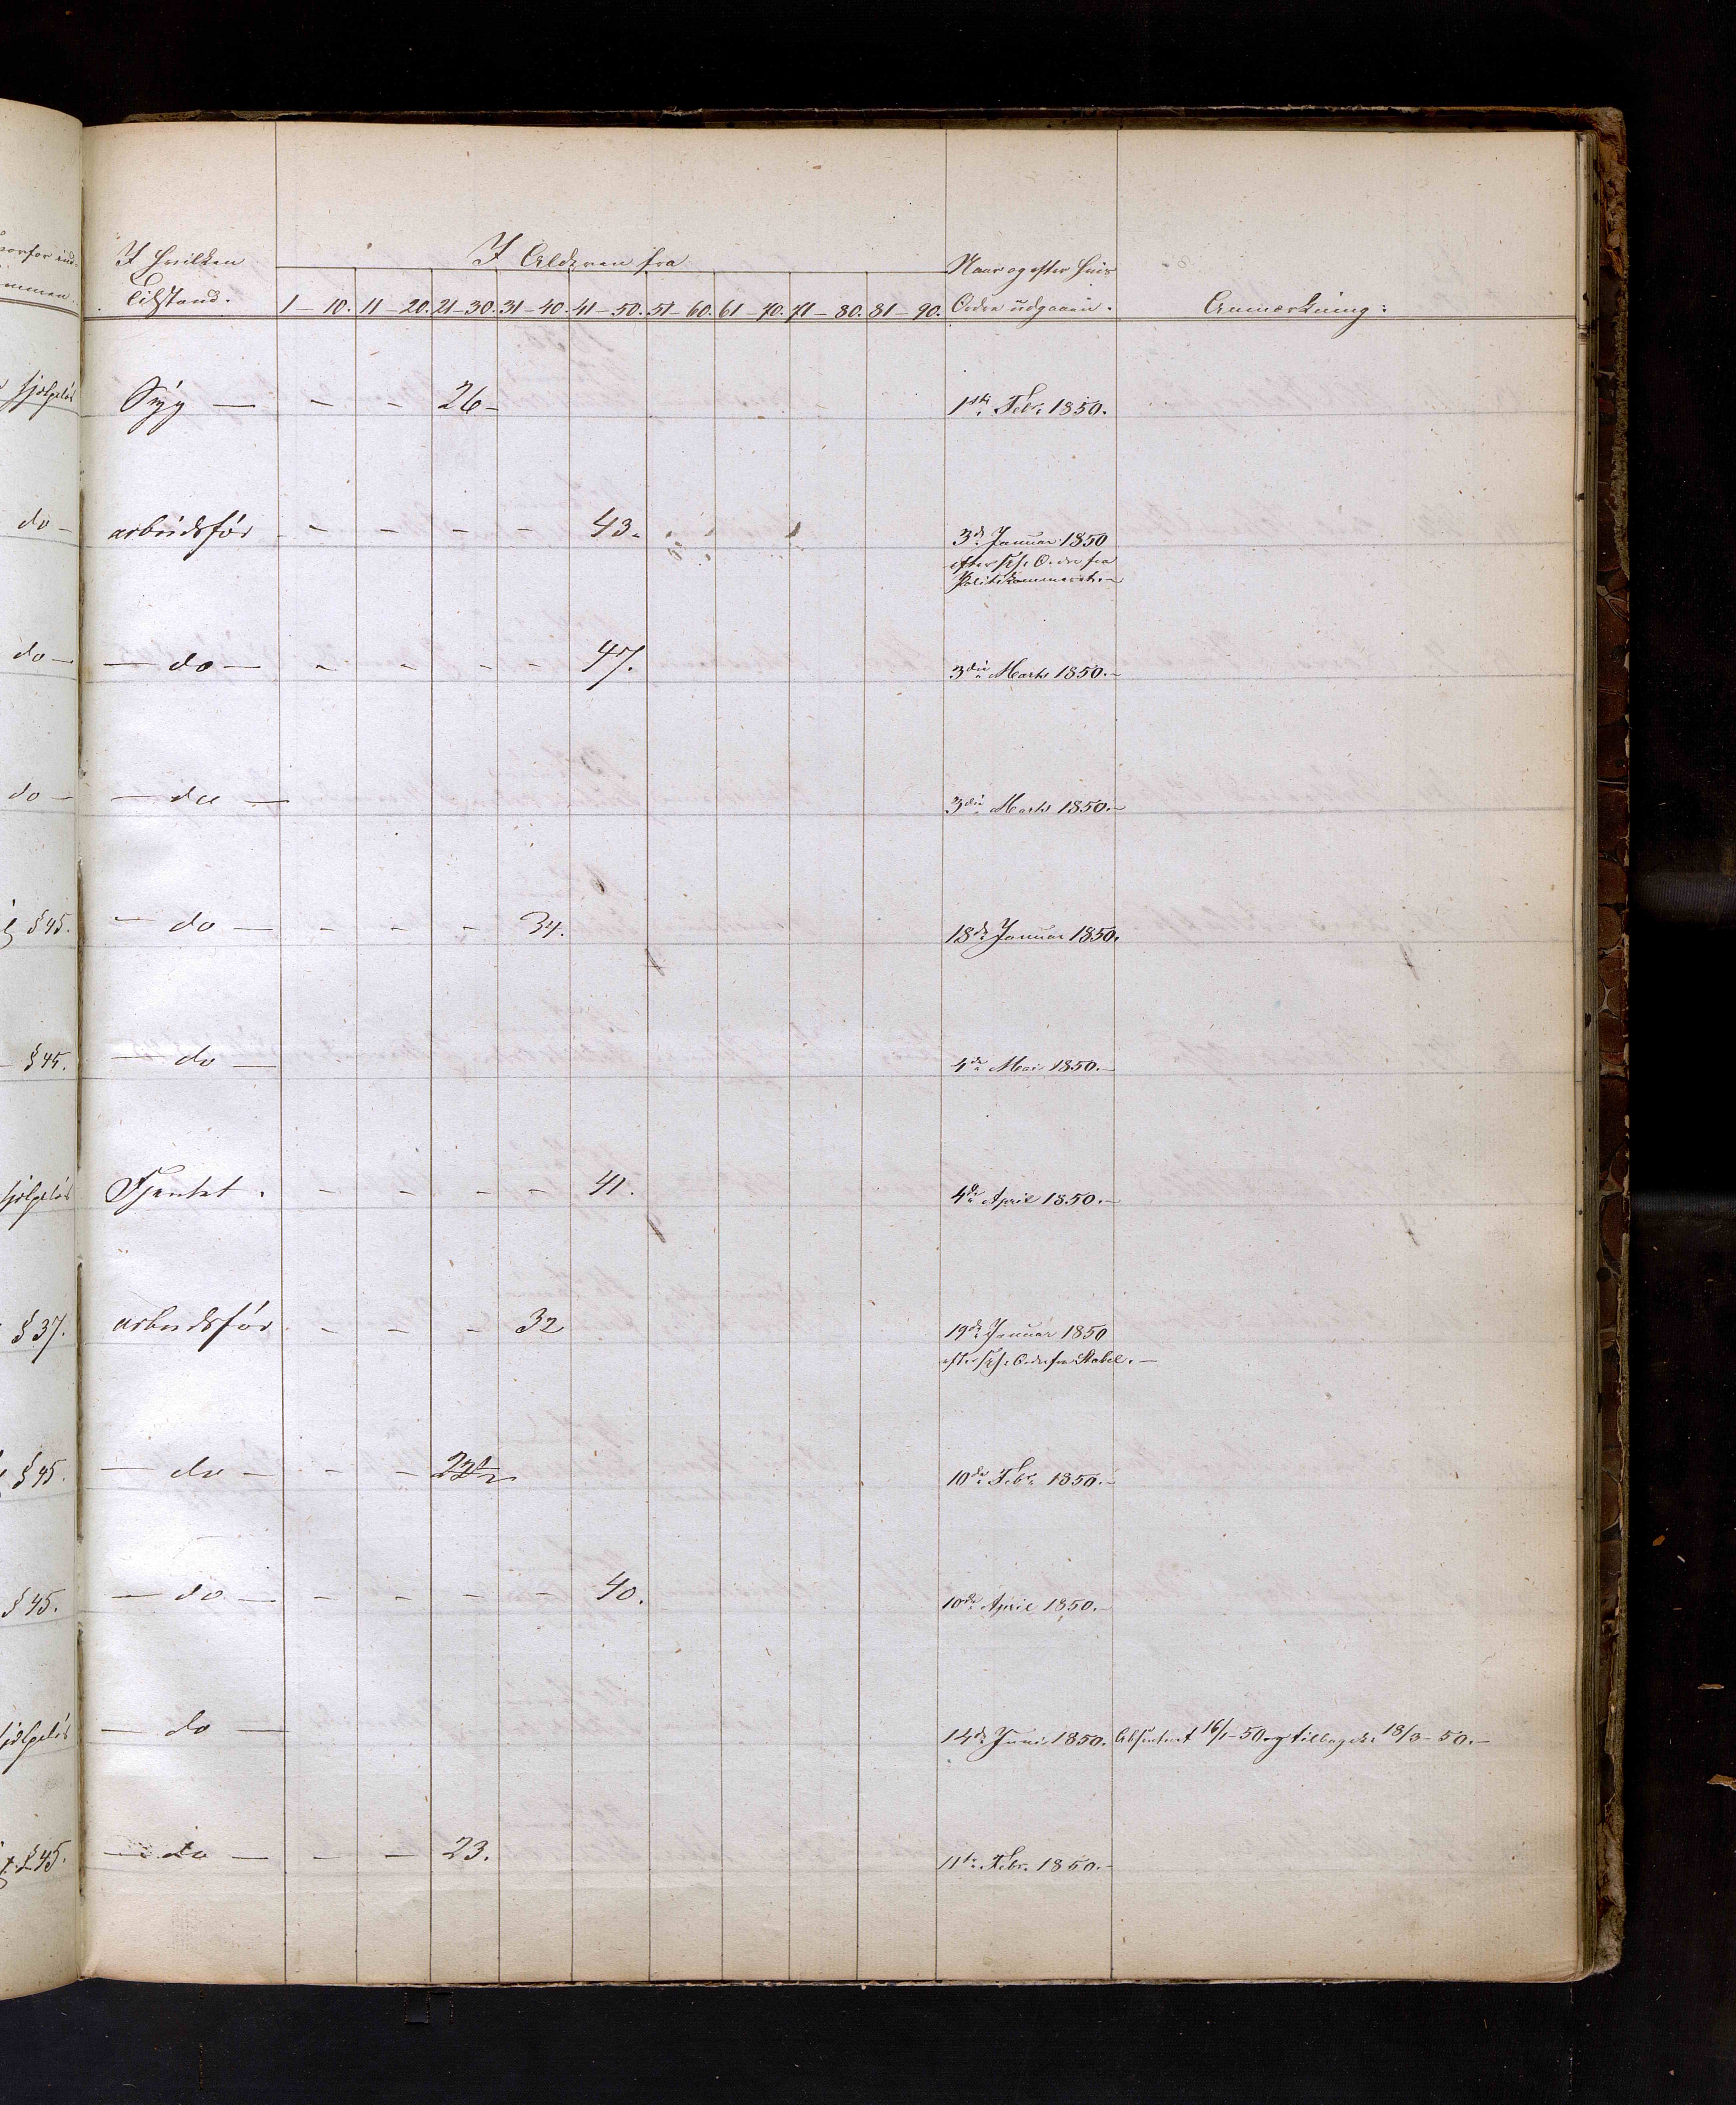 I hvilken
Tilstand.
I Alderen fra
Naar og efter hvis
Ordre udgaaen.
Anmærkning:
1 – 10. 11 – 20. 21 – 30. 31 – 40. 41 – 50. 51 – 60. 61 – 70. 71 – 80. 81 – 90.
hjelpelós Syg — - - 26 - 1ste Febr. 1850.
do - arbeidsfór - - - - 43. 3de Januar 1850
efter Ordre fra
do - — do — - - - - 47. 3die Marts 1850. -
do - — do — 3die Marts 1850. -
§ 45. — do — - - - 34. 18de Januar 1850.
§ 45. — do — 4de Mai 1850. -
hjelpelós - - - - 41. 4de April 1850. -
§ 37. arbeidsfór - - - 32 19de Januar 1850
efter Ordre fra Stabel. —
§ 45. — do - - - 22½ 10de Febr. 1850. -
§ 45. — do — - - - - 40. 10de April 1850. -
hjelpelós — do — 14de Juni 1850. Absenteret 16/1 - 50 og tilbage 18/3 - 50. -
§ 45. — do — - - 23. 11te Febr. 1850. -